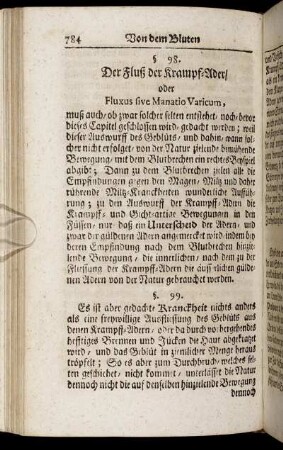 784 Von dem Bluten
§ 98.
Der Fluß der Krampf-Ader/
oder
Fluxus sive Manatio Varicum,
muß auch/ ob zwar solcher selten entstehet/ noch/ bevor
dieses Capitel geschlossen wird/ gedacht werden; weil
dieser Auswurff des Geblüts/ und dahin/ wann sol-
cher nicht erfolget/ von der Natur zielende bemühende
Bewegung/ mit dem Blutbrechen ein rechtes Beyspiel
abgibt; Dann zu dem Blutbrechen zielen alle die
Empfindungen gegen den Magen/ Miltz und daher
rührende Miltz-Kranckheiten wunderliche Auffüh-
rung; zu den Auswurff der Krampff-Adern die
Krampff- und Gicht-artige Bewegungen in den
Füssen/ nur daß im Unterscheid der Adern/ und
zwar der güldenen Adern angemercket wird/ indem bey
deren Empfindung nach dem Blutbrechen hinzie-
lende Bewegung/ die innerlichen/ nach dem zu der
Fliessung der Krampff-Adern die äusserlichen gülde-
nen Adern von der Natur gebrauchet werden.
§. 99.
Es ist aber gedachte Kranckheit nichts anders
als eine freywillige Ausfliessung des Geblüts aus
denen Krampff-Adern/ oder da durch vorhergehendes
hefftiges Brennen und Jücken die Haut abgekratzet
wird/ und das Geblüt in ziemlicher Menge heraus
tröpfelt; So es aber zum Durchbruch/ welches sel-
ten geschiehet/ nicht kommet/ unterlässet die Natur
dennoch nicht die auf denselben hinzielende Bewegung
dennoch